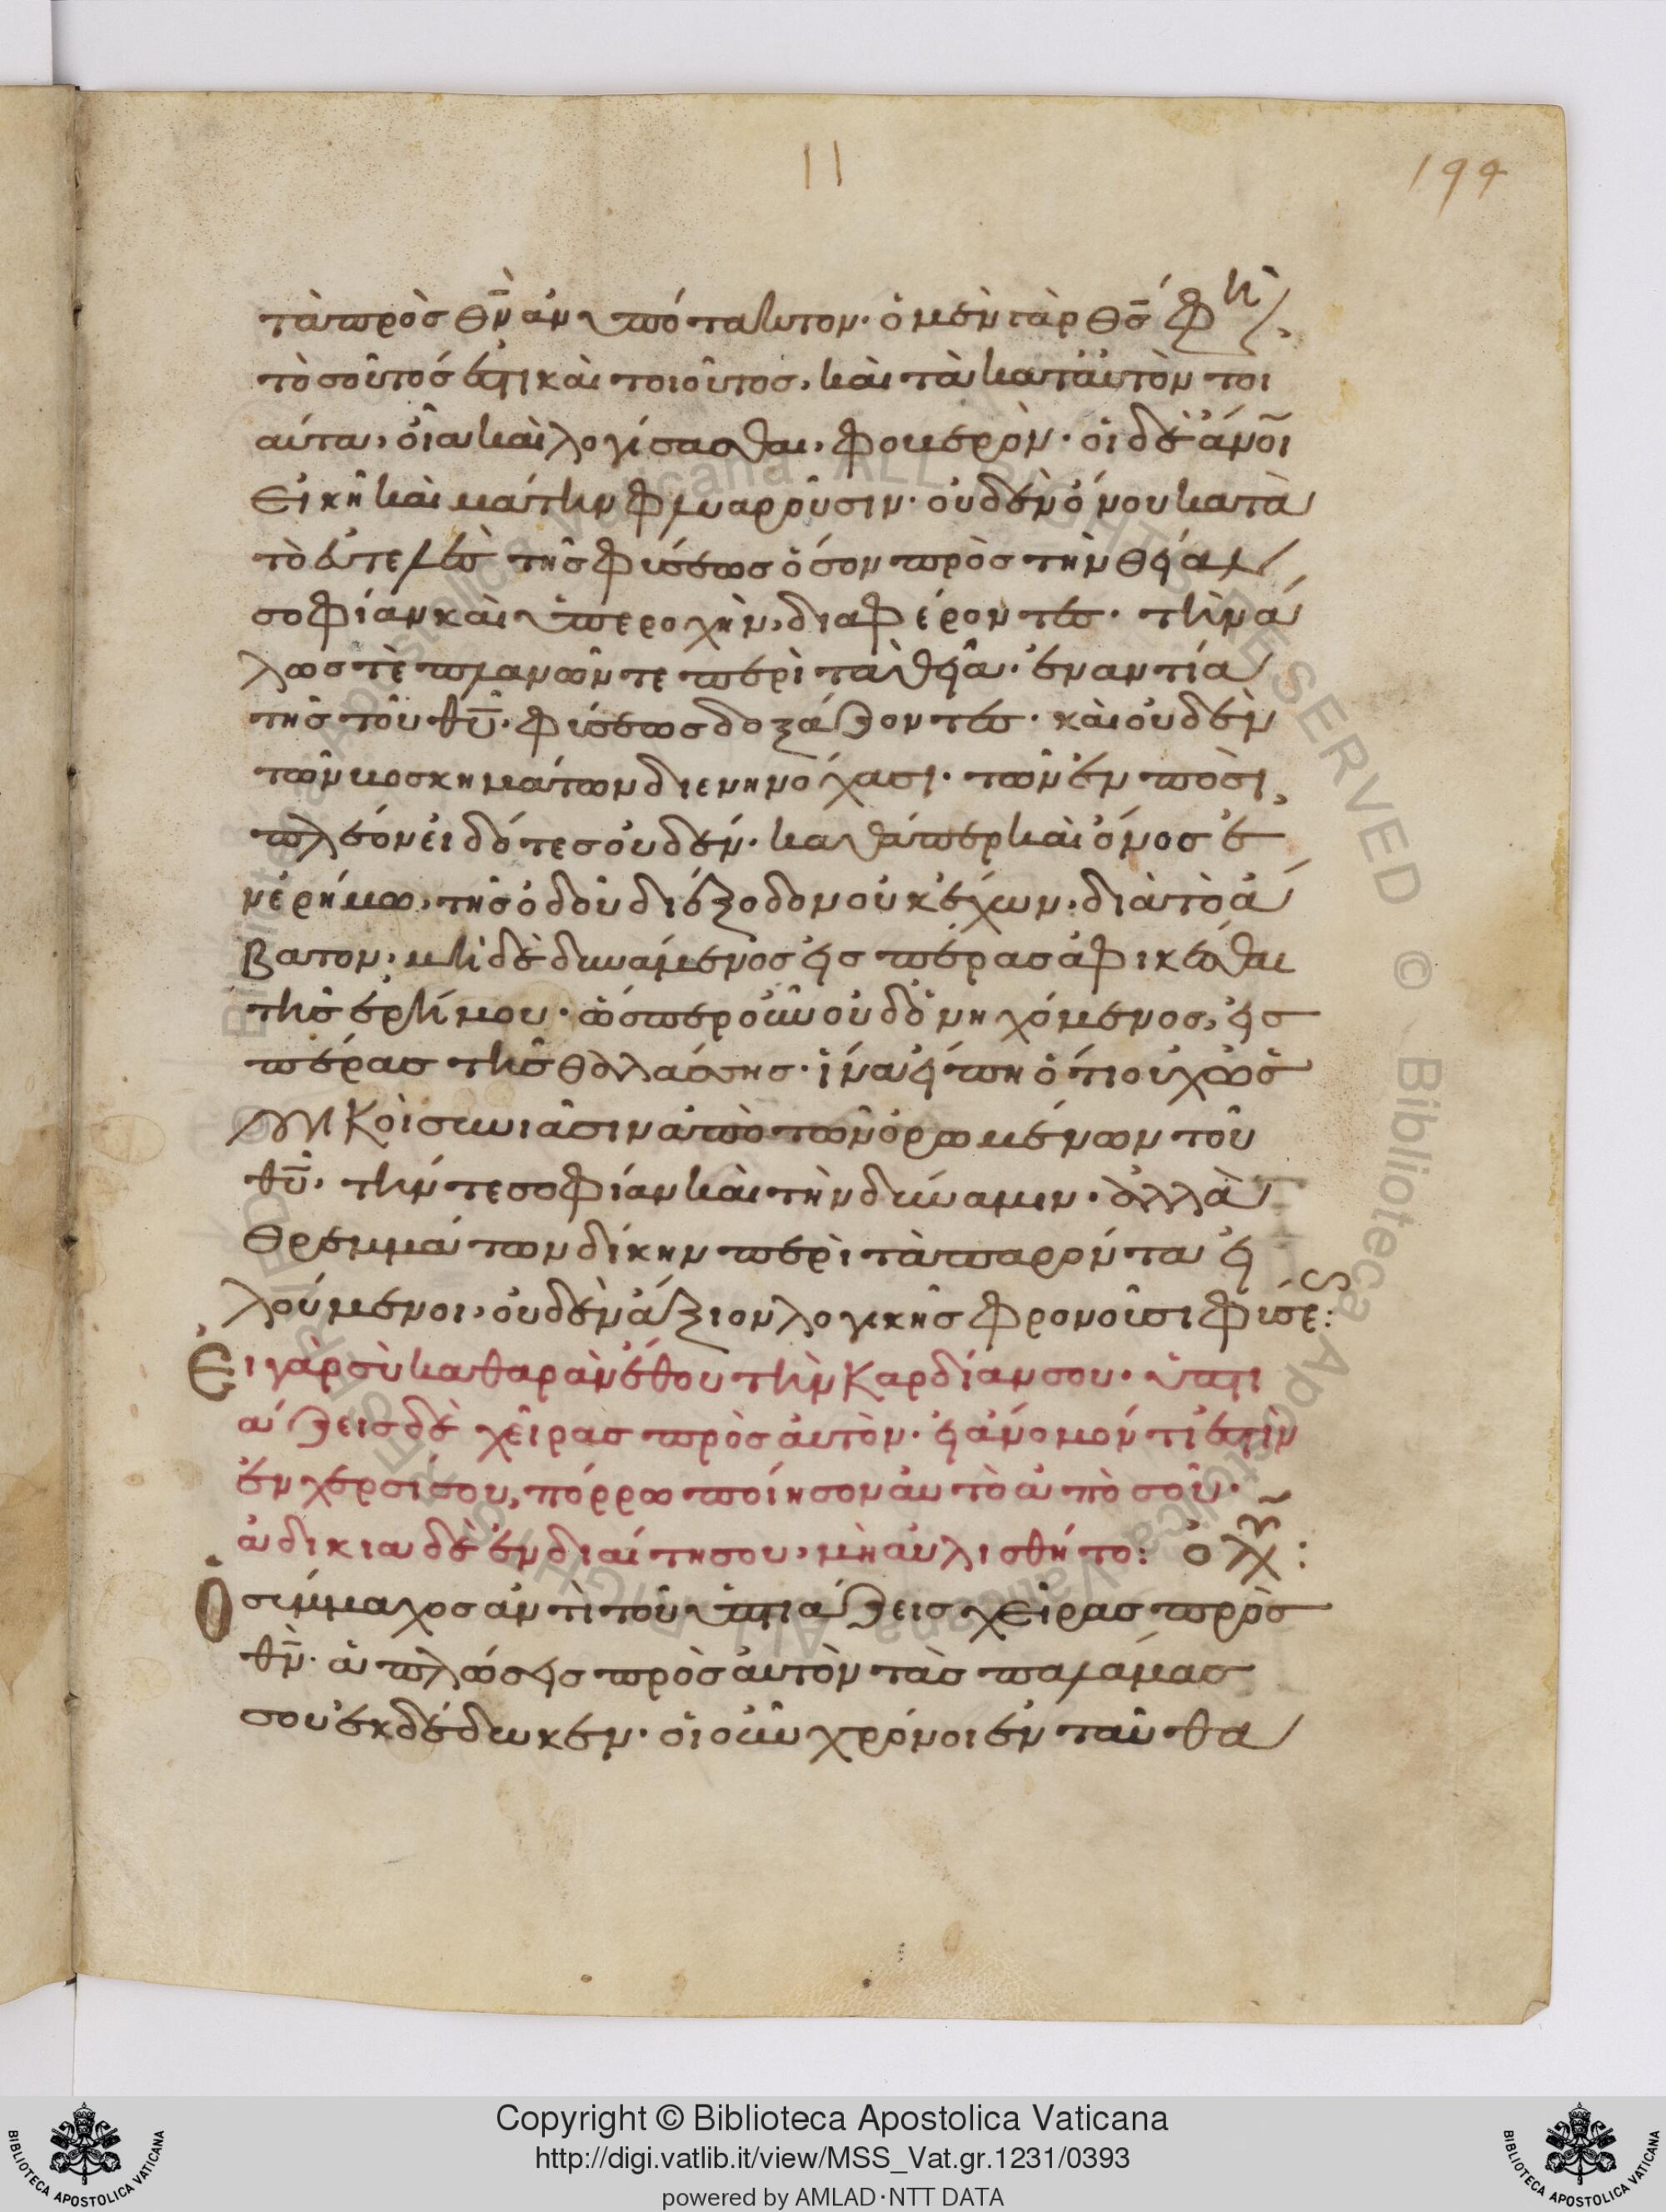 11
199
τὰ πρὸς θν̅ ἀνυπότακτον· ὁ μὲν γὰρ θς̅ φη
τὸσοῦτός ἐστι καὶ τοιοῦτος, καὶ τὰ κατ' αὐτὸν τοι
αύτα, οἷα καὶ λογίσασθαι, φοβερόν· οἱ δὲ ἄνοι
εἰκῆ καὶ μάτην φλυαροῦσιν· οὐδὲν ὄνου κατὰ
τὸ εὐτελὲς τῆς φύσεως ὅσον πρὸς τὴν θείαν
σοφίαν καὶ ὑπεροχὴν, διαφέροντες· τὴν ἄ
λως τὲ πλανῶνται περὶ τὰ θεῖα· ἐναντία
τῆς τοῦ θυ̅· φύσεως δοξάζοντες· καὶ οὐδὲν
τῶν βοσκημάτων διενηνόχασι· τῶν ἐν ποσὶ
πλέον εἰδότες οὐδέν· καθάπερ καὶ ὄνος ἐ
ν ἐρήμω, τῆς ὁδοῦ διέξοδον οὐκ ἔχων, διὰ τὸ ἄ
βατον, μὴ δὲ δυνάμενος εἰς πέρας ἀφικέσθαι
τῆς ἐρήμου· ὥσπερ οὖν οὐδὁ νηχόμενος, εἰς
πέρας τῆς θαλάσσης· ἵνα εἴπη ὅτι οὐχ ὡς
λογικοὶ συνιᾶσιν ἀπὸ τῶν ὁρωμένων τοῦ
θυ̅· τήν τε σοφίαν καὶ τὴν δύναμιν· ἀλλὰ
θρεμμάτων δίκην περὶ τὰ παρόντα εἰ
λούμενοι, οὐδὲν ἄξιον λογικῆς φρονοῦσι φύσε:
Εἰ γὰρ σὺ καθαρὰν ἔθου τὴν καρδίαν σου· ὑπτι
άζεις δὲ χεῖρας πρὸς αὐτὸν· εἰ ἄνομόν τί ἐστιν
ἐν χερσί σου, πόρρω ποίησον αὐτὸ ἀπὸ σοῦ·
ἀδικία δὲ ἐν διαίτη σου, μὴ αὐλισθήτο: ὀλχ:
Ὁ σύμμαχος ἀντὶ τοῦ ὑπτιάζεις χεῖρας πρὸς
θν̅· ἁπλώσεις πρὸς αὐτὸν τὰς παλάμας
σου ἐκδέδωκεν· οἱ οὖν χρόνοι ἐνταῦθα
Copyright © Biblioteca Apostolica Vaticana
http://digi.vatlib.it/view/MSS_Vat.gr.1231/0393
powered by AMLAD·NTT DATA
BIBLIOTECA APOSTOLICA VATICANA
BIBLIOTECA APOSTOLICA VATICANA